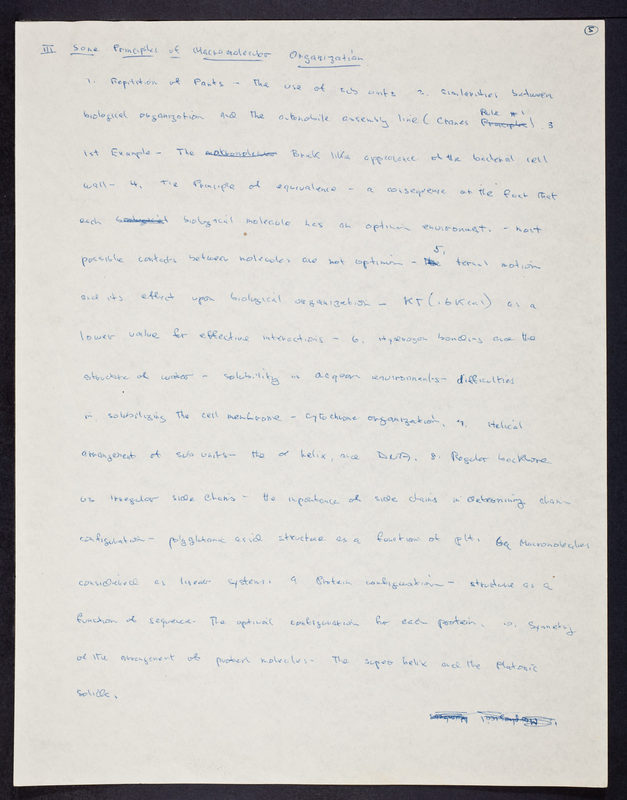 5
III Some Principles of Macromolecular Organization
1. Repitition of Parts - The use of sub units 2. Similarities between
Rule #1
biological organization and the automobile assembly line (Cranes Principle) 3
1st Example - The Brick like appearance of the bacterial cell
wall - 4. The Principle of equivalence - a consequence of the fact that
each biological molecule has an optium environment. - most
5.
possible contacts between molecules are not optimum - termal motion
and its effect upon biological organization - KT (.6 Kcal) as a
lower value for effective interactions - 6. Hydrogen bonding and the
structure of water - solubility in aqueous environments - difficulties
in solubilizing the cell membrane - cytochrome organization. 7. Helical
arrangement of sub units - the α helix, and DNA. 8. Regular backbone
vs irregular side chains - the importance of side chains in determining chain
configuration - polyglutamic acid structure as a function of pH. Macromolecules
considered as linear systems. 9 Protein configuration - structure as a
function of sequence. The optimal configuration for each protein. 10. Symmetry
of the arrangement of protein molecules - The super helix and the Platonic
solids.